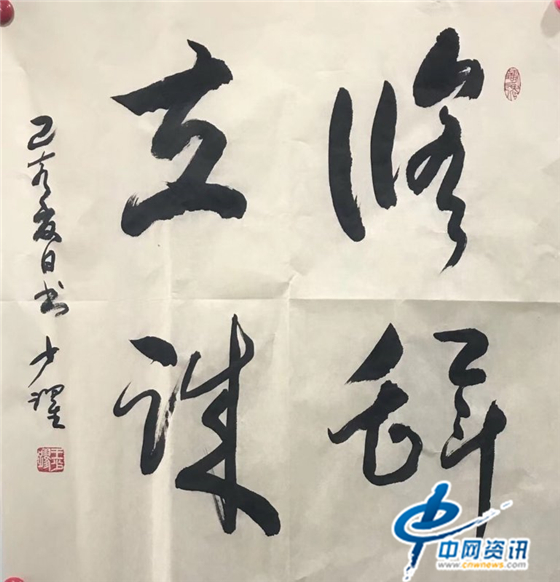 修辞
立诚
己亥夏日书 少
中网资讯
www.cnwnews.com